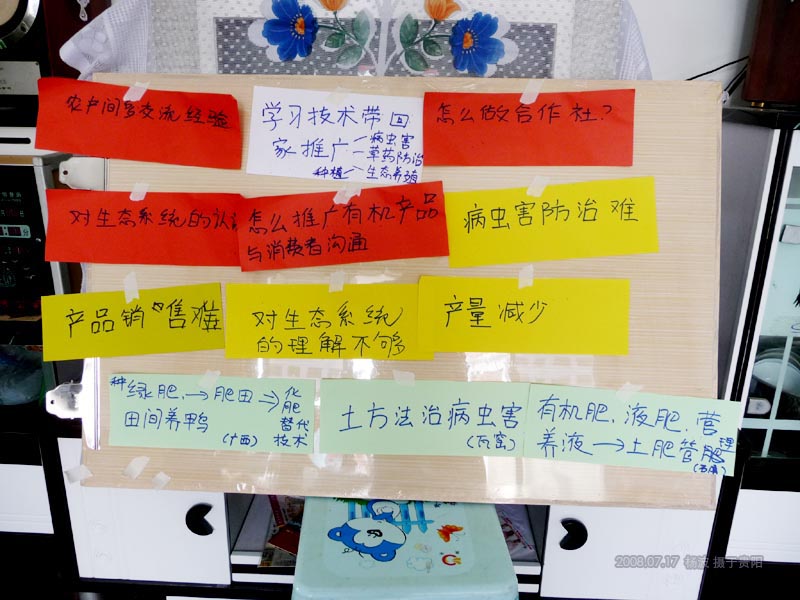 农户间多交流经验
学习技术带回
家推广
病虫害
草药防治
种植
生态养殖
怎么做合作社?
对生态系统的认
怎么推广有机产品
与消费者沟通
病虫害防治难
产品销售难
对生态系统
的理解不够
产量减少
种绿肥→肥田→化肥替代技术
田间养鸭
(广西)
土方法治病虫害
有机肥、液肥、营
养液→土肥管理
2008.07.17 杨波 摄于贵阳